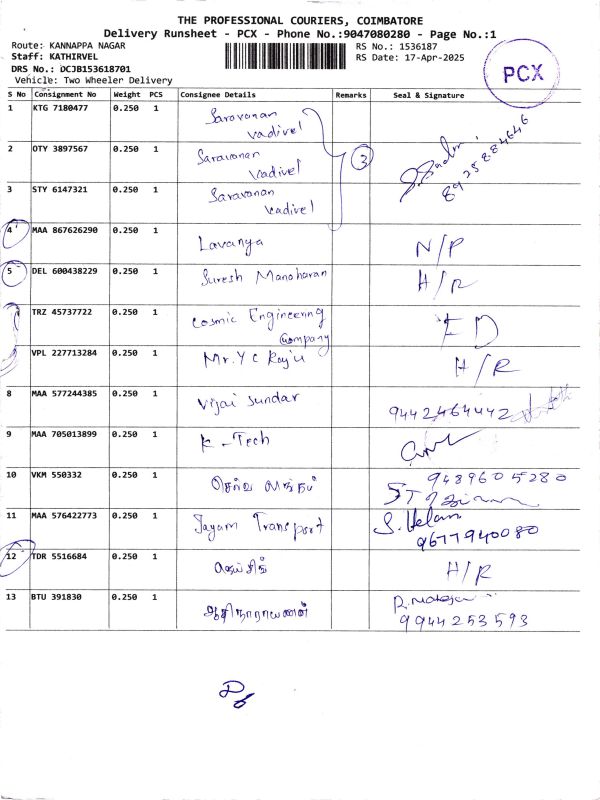 THE PROFESSIONAL COURIERS, COIMBATORE
Delivery Runsheet - PCX - Phone No.:9047080280 - Page No.:1
Route: KANNAPPA NAGAR RS No.: 1536187
Staff: KATHIRVEL RS Date: 17-Apr-2025
DRS No.: DCJB153618701
Vehicle: Two Wheeler Delivery
PCX
S No Consignment No Weight PCS Consignee Details Remarks Seal & Signature
1 KTG 7180477 0.250 1 Saravanan
vadivel
2 OTY 3897567 0.250 1 Saravanan
vadivel
3
8925884646
3 STY 6147321 0.250 1 Saravanan
vadivel
4 MAA 867626290 0.250 1 Lavanya N/P
5 DEL 600438229 0.250 1 Suresh Manoharan H/R
TRZ 45737722 0.250 1 Cosmic Engineering
Company
ED
VPL 227713284 0.250 1 Mr. Y C Raju H/R
8 MAA 577244385 0.250 1 Vijai Sundar 9442464442
9 MAA 705013899 0.250 1 K-Tech
10 VKM 550332 0.250 1 9489605280
11 MAA 576422773 0.250 1 Jayam Transport S. Helan
9677940080
12 TDR 5516684 0.250 1 H/R
13 BTU 391830 0.250 1 ஆதிநாராயணன்
9944253593